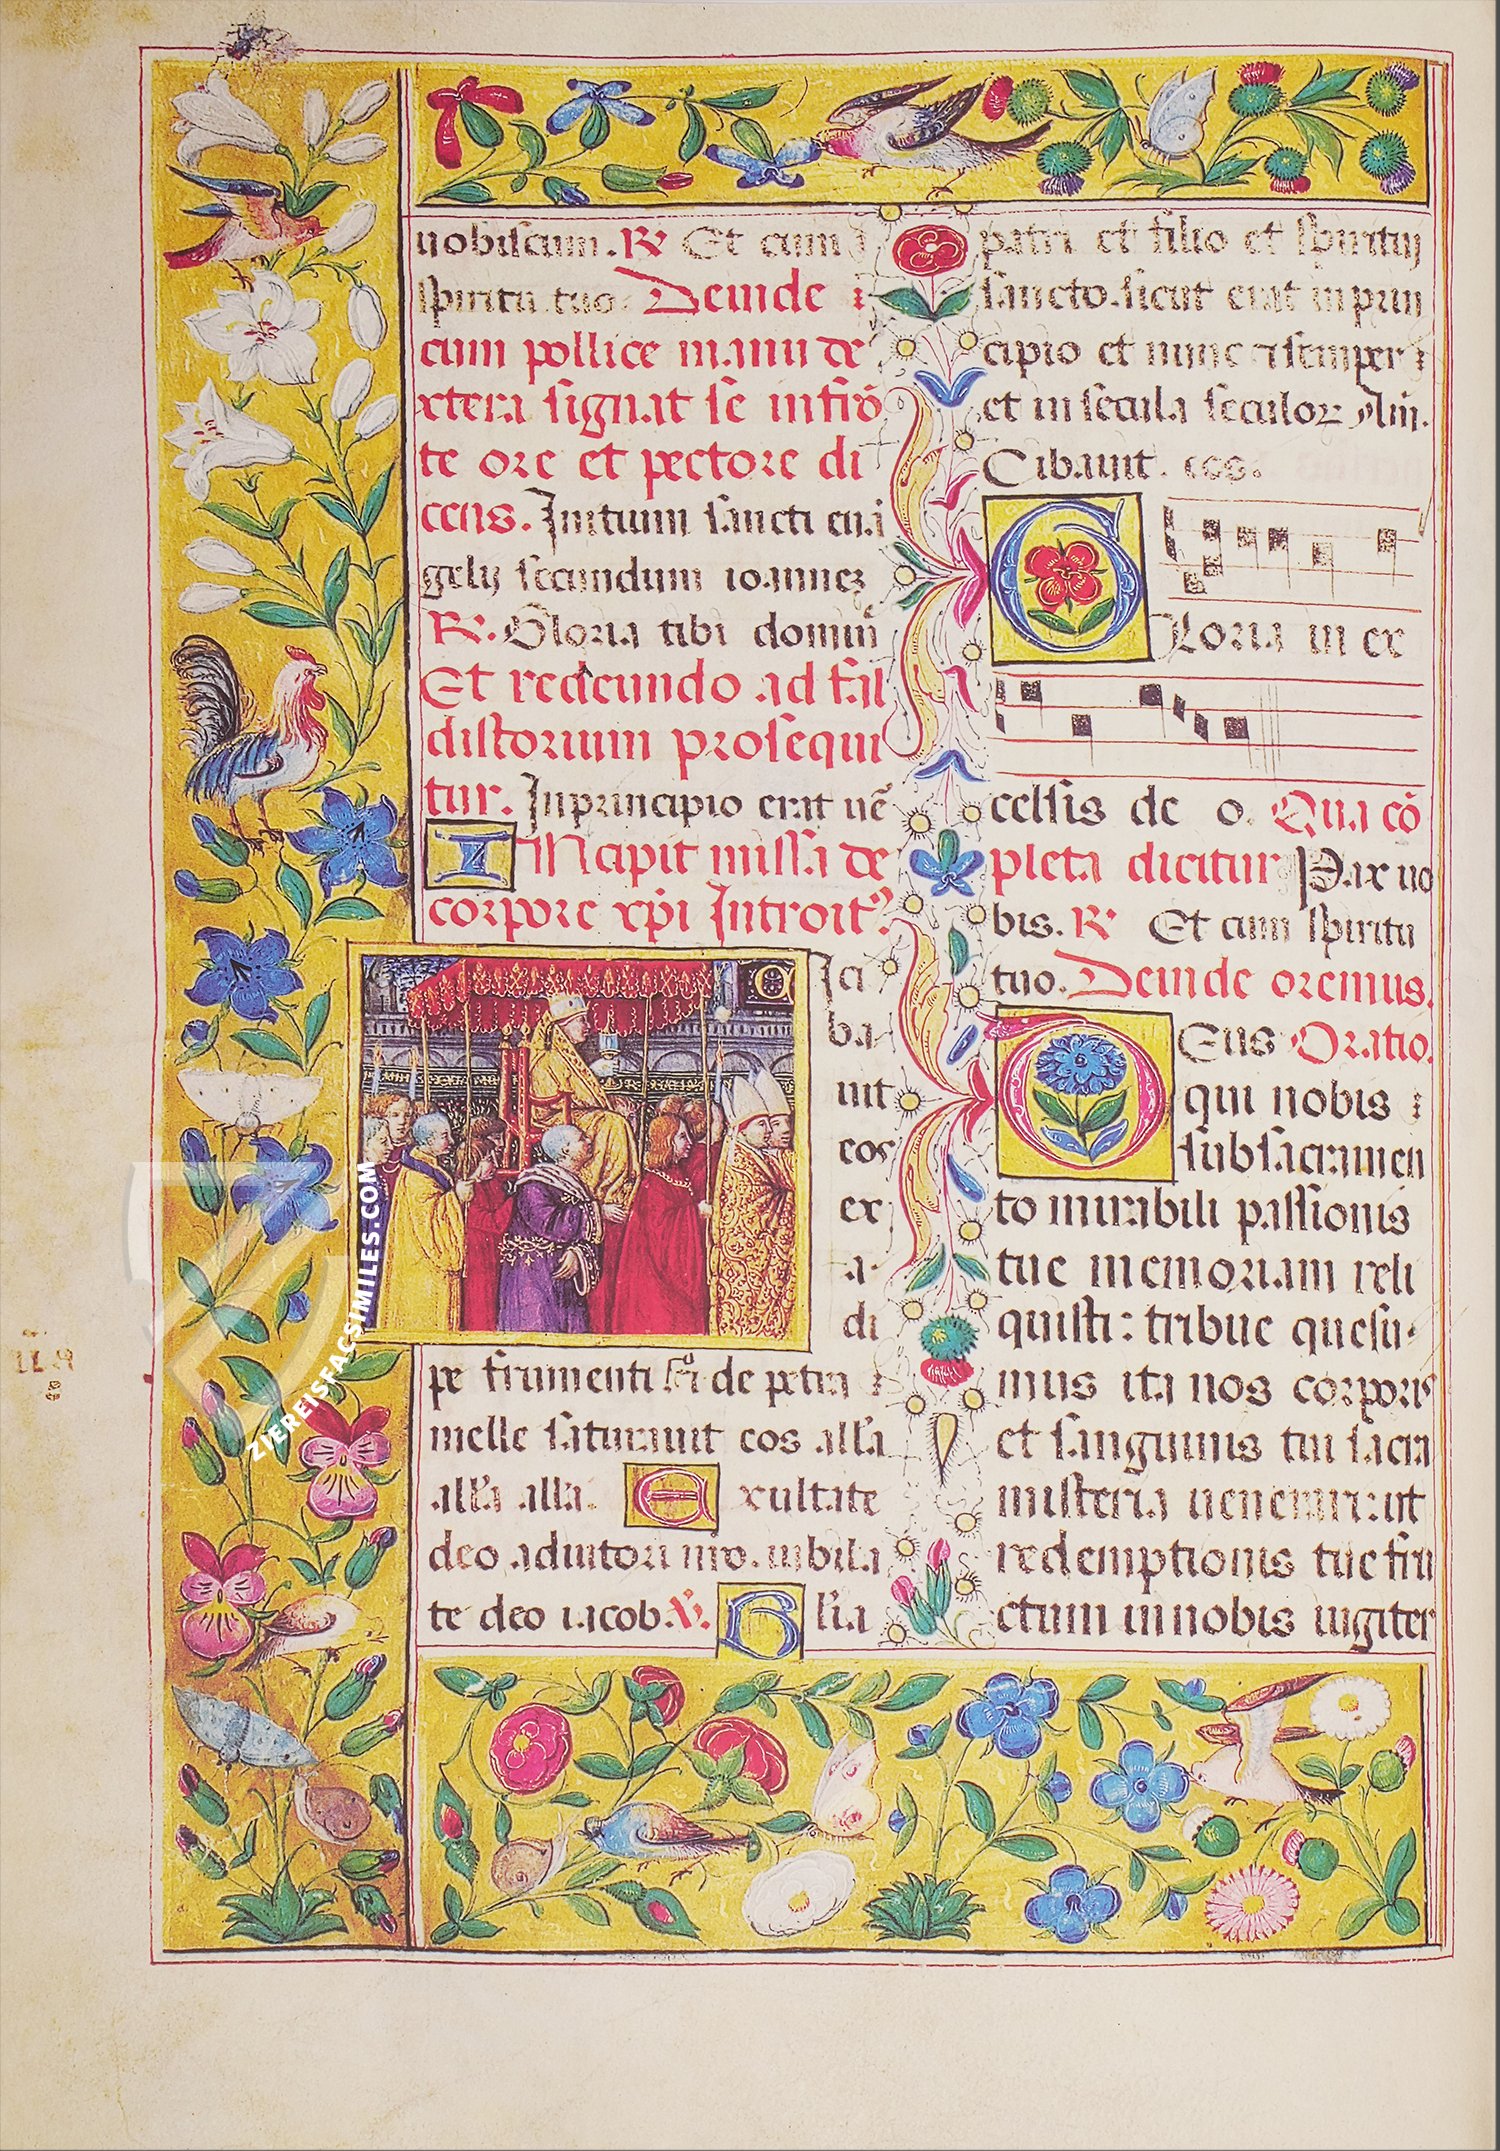 uobiscum. R Et cum
spiritu tuo. Deinde
cum pollice manu de
xtera signat se in frō
te ore et pectore di
cens. Initium sancti eua
gelij secundum ioannez
R. Gloria tibi domin
Et redeundo ad fal
distorium prosequi
tur. In principio erat uē
INcipit missa de
corpore xpi Introit9
Cici
ba
uit
eos
ex
a
di
pe frumenti de petra
melle saturauit eos alla
alla alla. Exultate
deo adiutori nro. iubila
te deo iacob. V. Glia
patri et filio et spiritui
sancto. sicut erat in prin
cipio et nunc et semper
et in secula seculorz Am.
Cibauit eos.
Gloria in ex
celsis de o. Qua cō
pleta dicitur Pax uo
bis. R Et cum spiritu
tuo. Deinde oremus.
DEus Oratio.
qui nobis
sub sacramen
to mirabili passionis
tue memoriam reli
quisti: tribue quesu
mus ita nos corporis
et sanguinis tui sacra
misteria uenerari: ut
redemptionis tue fru
ctum in nobis iugiter
ZIEREISFACSIMILES.COM